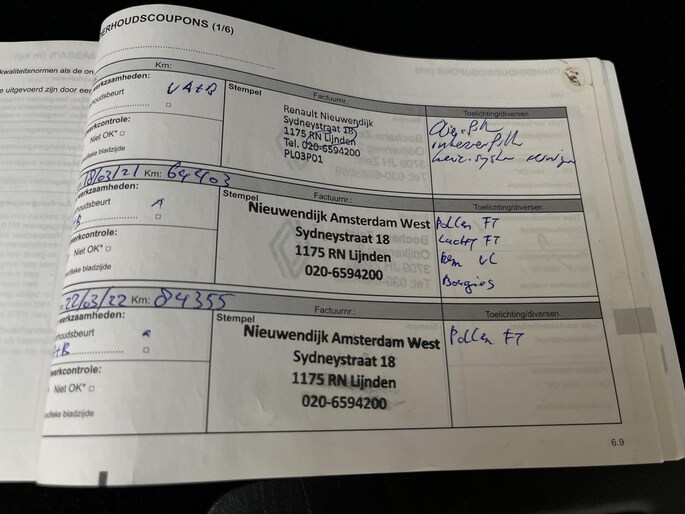 ERHOUDSCOUPONS (1/6)
kwaliteitsnormen als de on
e uitgevoerd zijn door een
Km:
erkzaamheden:
houdsbeurt VA+B
erkcontrole:
Niet OK*
ifieke bladzijde
Stempel
Factuurnr.:
Renault Nieuwendijk
Sydneystraat 18
1175 RN Lijnden
Tel. 020-6594200
PL03P01
Toelichting/diversen
18/03/21 Km: 64403
erkzaamheden:
oudsbeurt A
+B
erkcontrole:
Niet OK*
ifieke bladzijde
Stempel
Factuurnr.:
Nieuwendijk Amsterdam West
Sydneystraat 18
1175 RN Lijnden
020-6594200
Toelichting/diversen
Pollen FT
Lucht FT
Rem VL
Bougies
22/03/22 Km: 84355
erkzaamheden:
oudsbeurt A
+B
erkcontrole:
Niet OK*
cifieke bladzijde
Stempel
Factuurnr.:
Nieuwendijk Amsterdam West
Sydneystraat 18
1175 RN Lijnden
020-6594200
Toelichting/diversen
Pollen FT
6.9